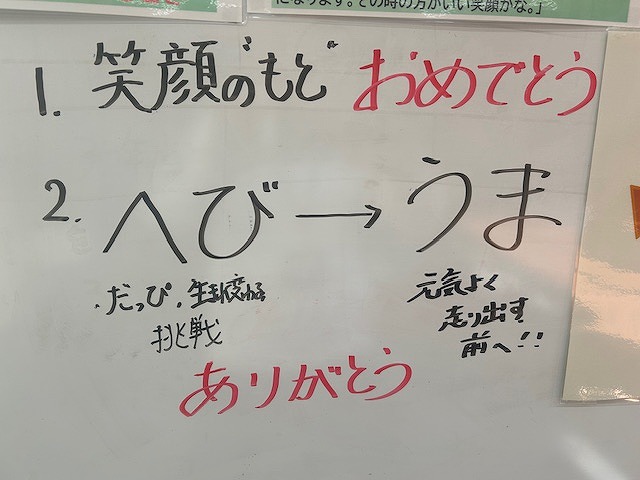 になります。その時の方がいい笑顔かな。」
1. 笑顔の"もと" おめでとう
2. へび → うま
・だっぴ・生まれ変わる
挑戦
元気よく
走り出す
前へ!!
ありがとう